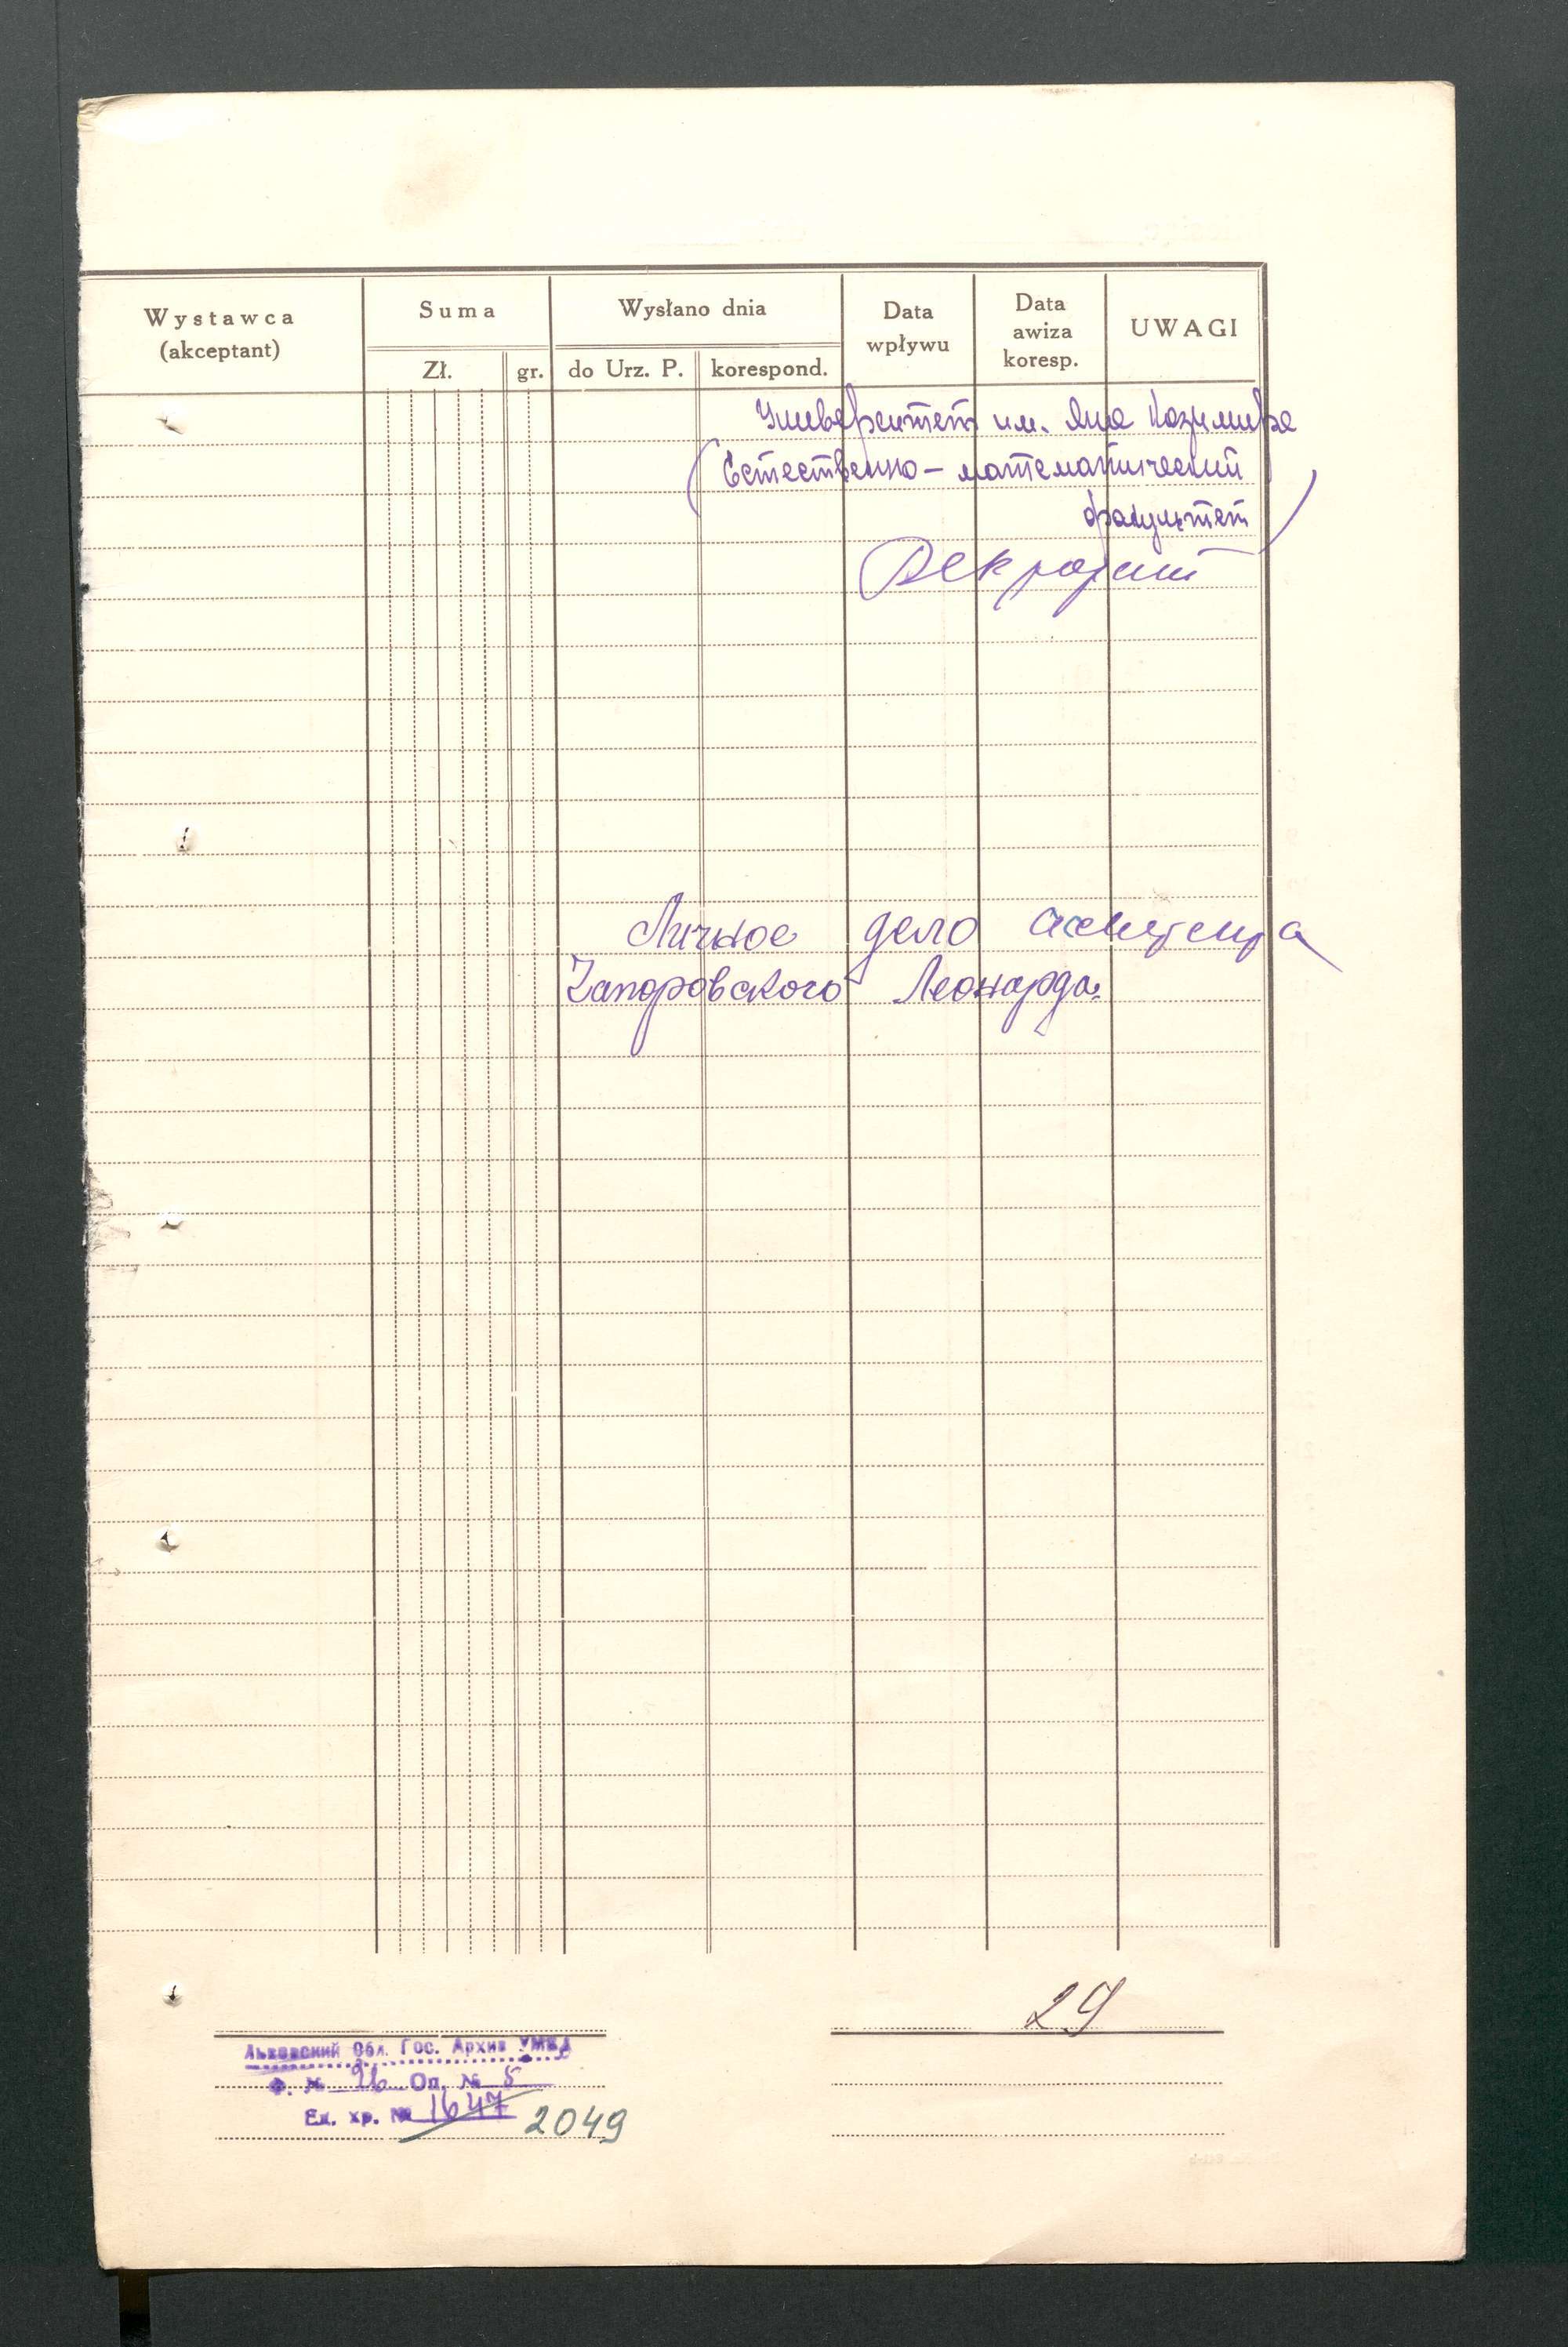 Wystawca
(akceptant)
Suma
Zł.
gr.
Wysłano dnia
do Urz. P.
korespond.
Data
wpływu
Data
awiza
koresp.
UWAGI
Университет им. Яна Казимира
(Естественно-математический
факультет)
Деканат
Личное дело ассистента
Запоровского Леонарда.
29
Львовский Обл. Гос. Архив УМВД
Ф. № 26 Оп. № 5
Ед. хр. № 1647 2049